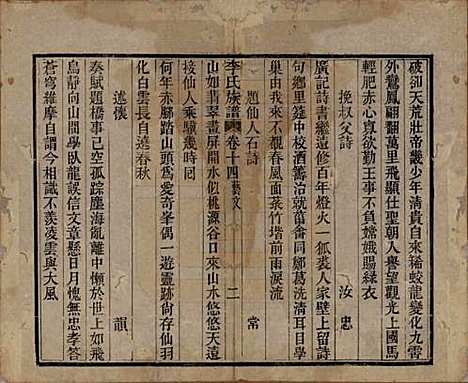 破卻天荒壯帝畿少年清貴自來稀蛟龍變化九霄
外鸞鳳翩翻萬里飛顯仕聖朝人舉望觀光上國馬
輕肥赤心真欲勤王事不負嫦娥賜綠衣
挽叔父詩 汝忠
廣記詩書繼遠修百年燈火一狐裘人家壁上留詩
句鄉里筵中校酒籌治就菑畬同鄭葛洗清耳目學
巢由我來不覩春風面菉竹堦前雨淚流
題仙人石詩 常
李氏族譜 卷十四藝文 二
山如翡翠畫屏開水似桃源谷口來山水悠悠天遠
接仙人乘驥幾時回
何年赤腳踏山頭為愛奇峯偶一遊靈跡尚存仙羽
化白雲長自遶春秋
述懷 韻
奏賦題橋事已空孤踪塵海亂離中慚於世路如飛
鳥靜向山間學臥龍誤信文章懸日月愧無忠孝答
蒼穹維摩自謂今相識不羨凌雲與大風